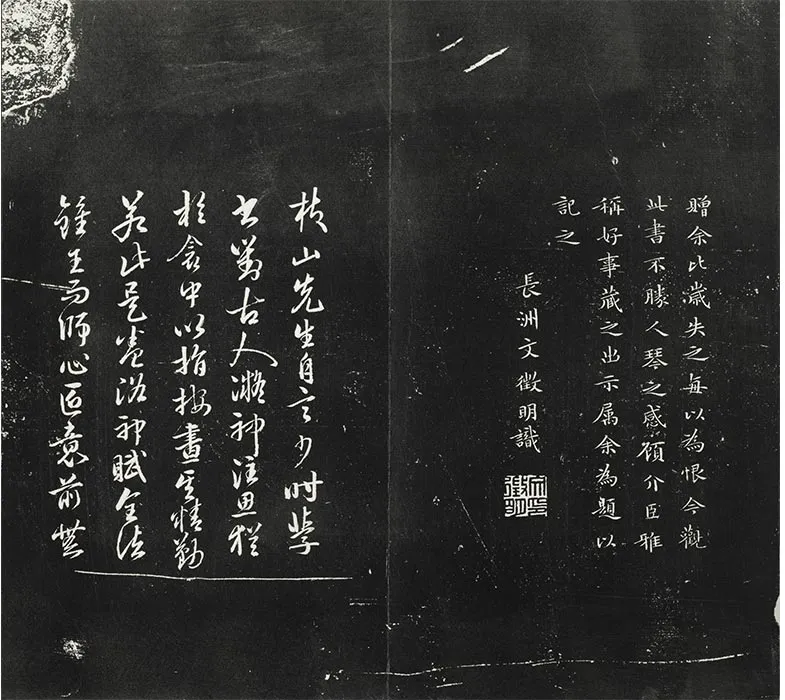 贈余比歲失之每以為恨今觀
此書不勝人琴之感顧介臣雅
稱好事藏之出示属余為題以
記之
長洲文徵明識
枝山先生自言少时學
書對古人凝神注思從
於衾中以指按畫其精勤
若此是卷洛神賦全法
鍾王而師心匠意前無